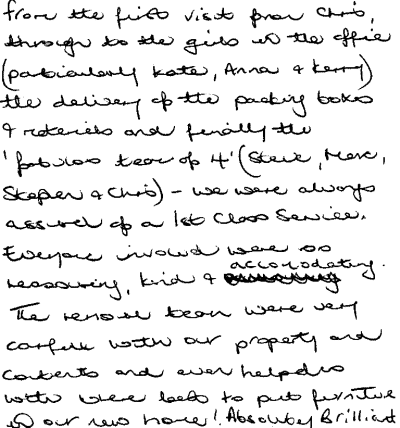 from the first visit from Chris,
through to the girls in the office
(particularly Kate, Anna & Kerry)
the delivery of the packing boxes
& materials and finally the
'fabulous team of 4' (Steve, Marc,
Stephen & Chris) - we were always
assured of a 1st Class Service.
Everyone involved were so
reassuring, kind & accomodating.
The removal team were very
careful with our property and
contents and even helped us
with where best to put furniture
in our new home! Absolutely Brilliant